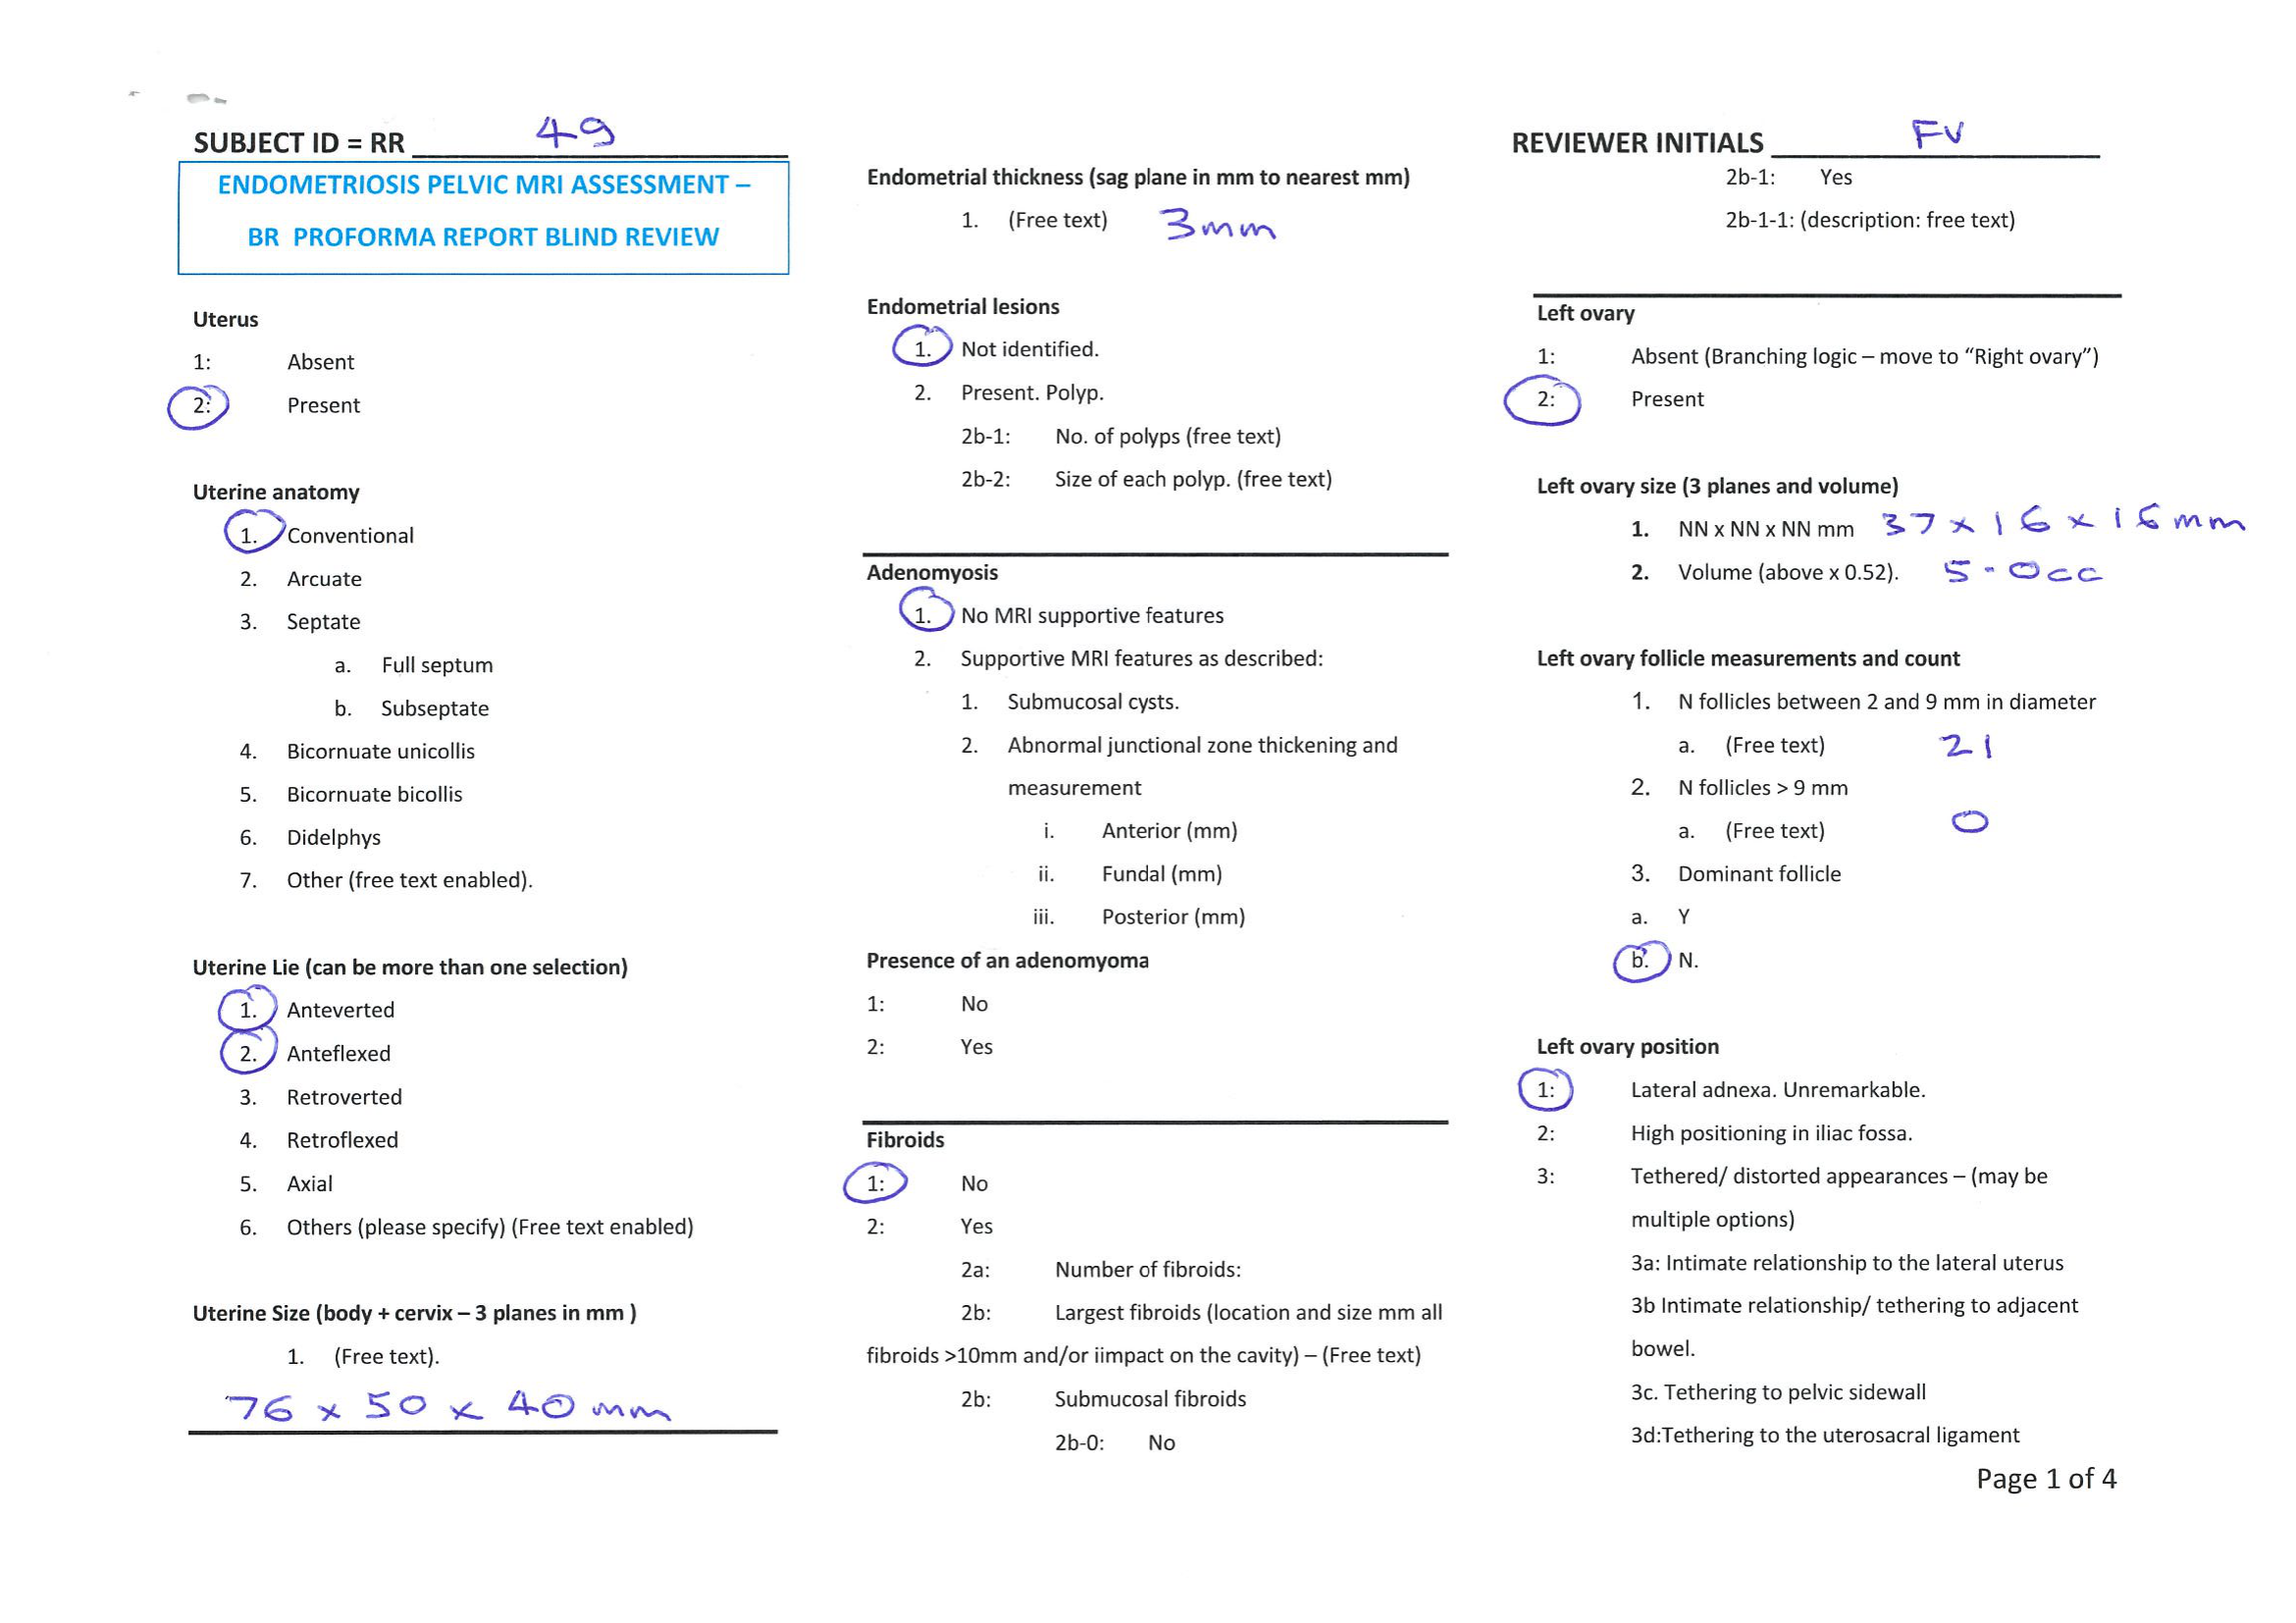 SUBJECT ID = RR 49
ENDOMETRIOSIS PELVIC MRI ASSESSMENT –
BR PROFORMA REPORT BLIND REVIEW
Uterus
1: Absent
2: Present
Uterine anatomy
1. Conventional
2. Arcuate
3. Septate
a. Full septum
b. Subseptate
4. Bicornuate unicollis
5. Bicornuate bicollis
6. Didelphys
7. Other (free text enabled).
Uterine Lie (can be more than one selection)
1. Anteverted
2. Anteflexed
3. Retroverted
4. Retroflexed
5. Axial
6. Others (please specify) (Free text enabled)
Uterine Size (body + cervix – 3 planes in mm )
1. (Free text).
76 x 50 x 40 mm
Endometrial thickness (sag plane in mm to nearest mm)
1. (Free text) 3mm
Endometrial lesions
1. Not identified.
2. Present. Polyp.
2b-1: No. of polyps (free text)
2b-2: Size of each polyp. (free text)
Adenomyosis
1. No MRI supportive features
2. Supportive MRI features as described:
1. Submucosal cysts.
2. Abnormal junctional zone thickening and
measurement
i. Anterior (mm)
ii. Fundal (mm)
iii. Posterior (mm)
Presence of an adenomyoma
1: No
2: Yes
Fibroids
1: No
2: Yes
2a: Number of fibroids:
2b: Largest fibroids (location and size mm all
fibroids >10mm and/or iimpact on the cavity) – (Free text)
2b: Submucosal fibroids
2b-0: No
REVIEWER INITIALS FV
2b-1: Yes
2b-1-1: (description: free text)
Left ovary
1: Absent (Branching logic – move to “Right ovary”)
2: Present
Left ovary size (3 planes and volume)
1. NN x NN x NN mm 37 x 16 x 16 mm
2. Volume (above x 0.52). 5.0cc
Left ovary follicle measurements and count
1. N follicles between 2 and 9 mm in diameter
a. (Free text) 21
2. N follicles > 9 mm
a. (Free text) 0
3. Dominant follicle
a. Y
b. N.
Left ovary position
1: Lateral adnexa. Unremarkable.
2: High positioning in iliac fossa.
3: Tethered/ distorted appearances – (may be
multiple options)
3a: Intimate relationship to the lateral uterus
3b Intimate relationship/ tethering to adjacent
bowel.
3c. Tethering to pelvic sidewall
3d:Tethering to the uterosacral ligament
Page 1 of 4